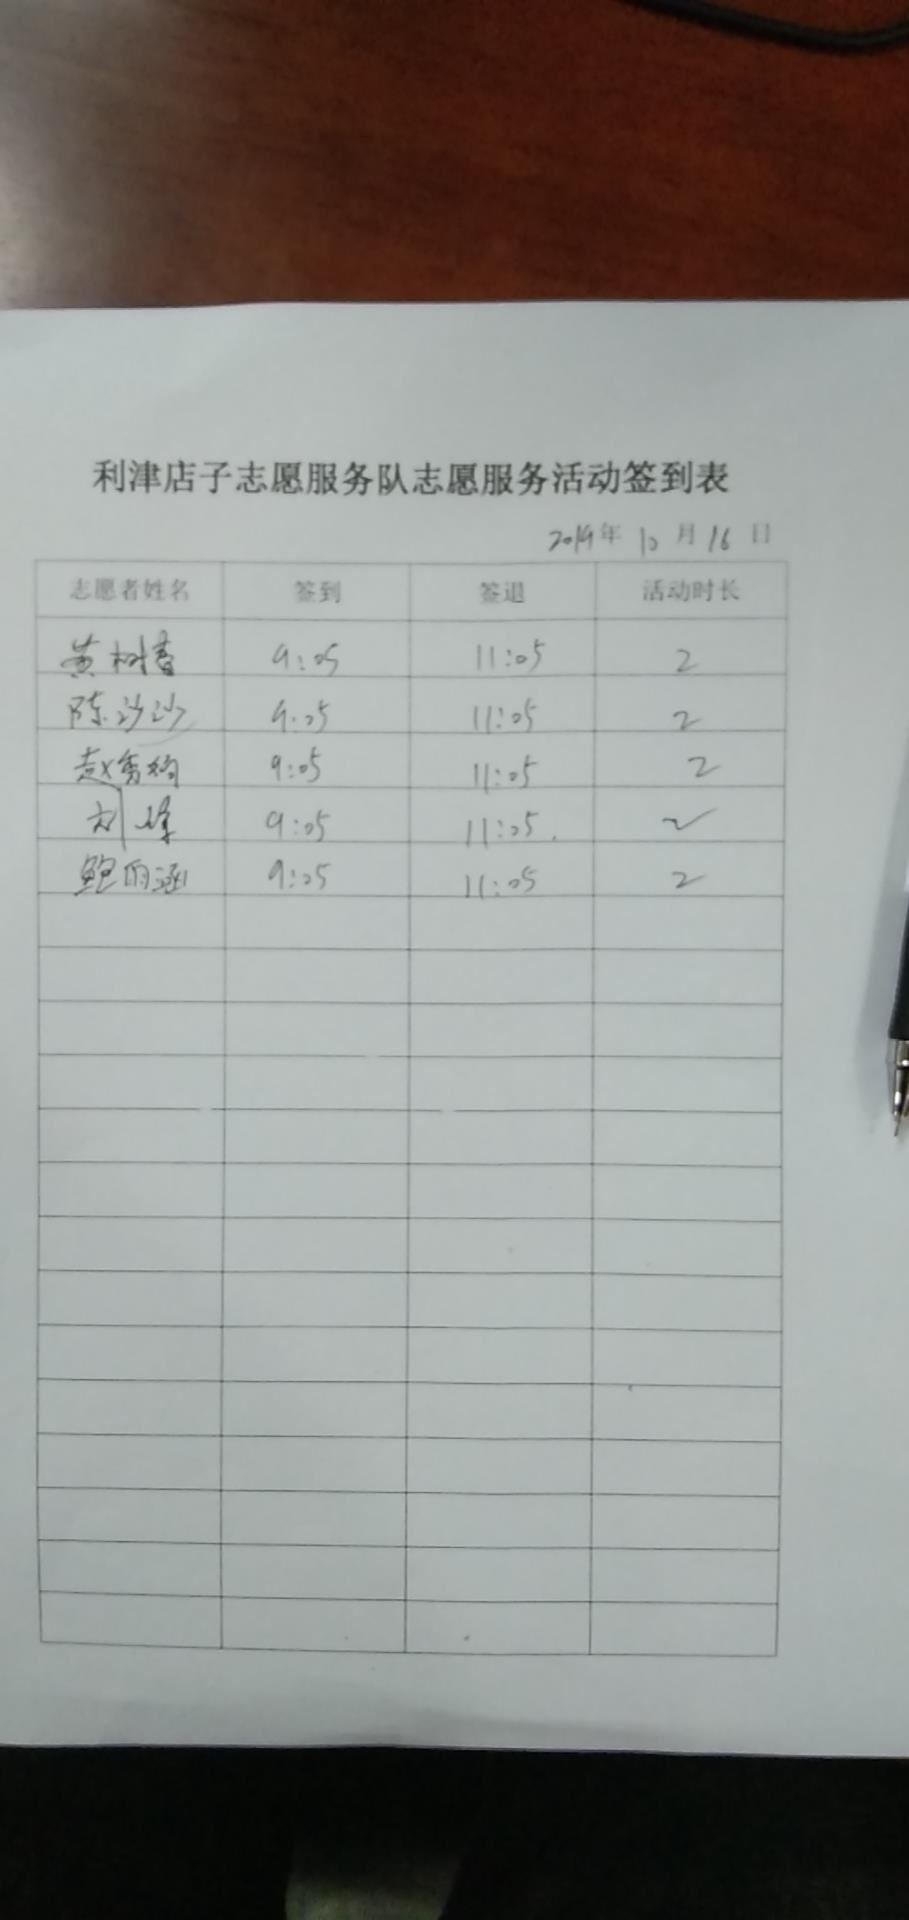 利津店子志愿服务队志愿服务活动签到表
2019年 10 月 16 日
志愿者姓名 签到 签退 活动时长
黄树春 9:05 11:05 2
陈沙沙 9:05 11:05 2
赵秀 9:05 11:05 2
刘峰 9:05 11:05 2
鲍雨涵 9:05 11:05 2